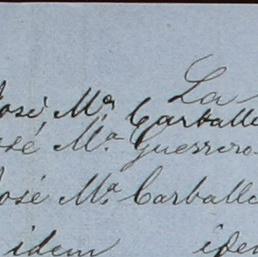 La
José Mª Carballo
José Mª Guerrero
José Mª Carballo
idem idem